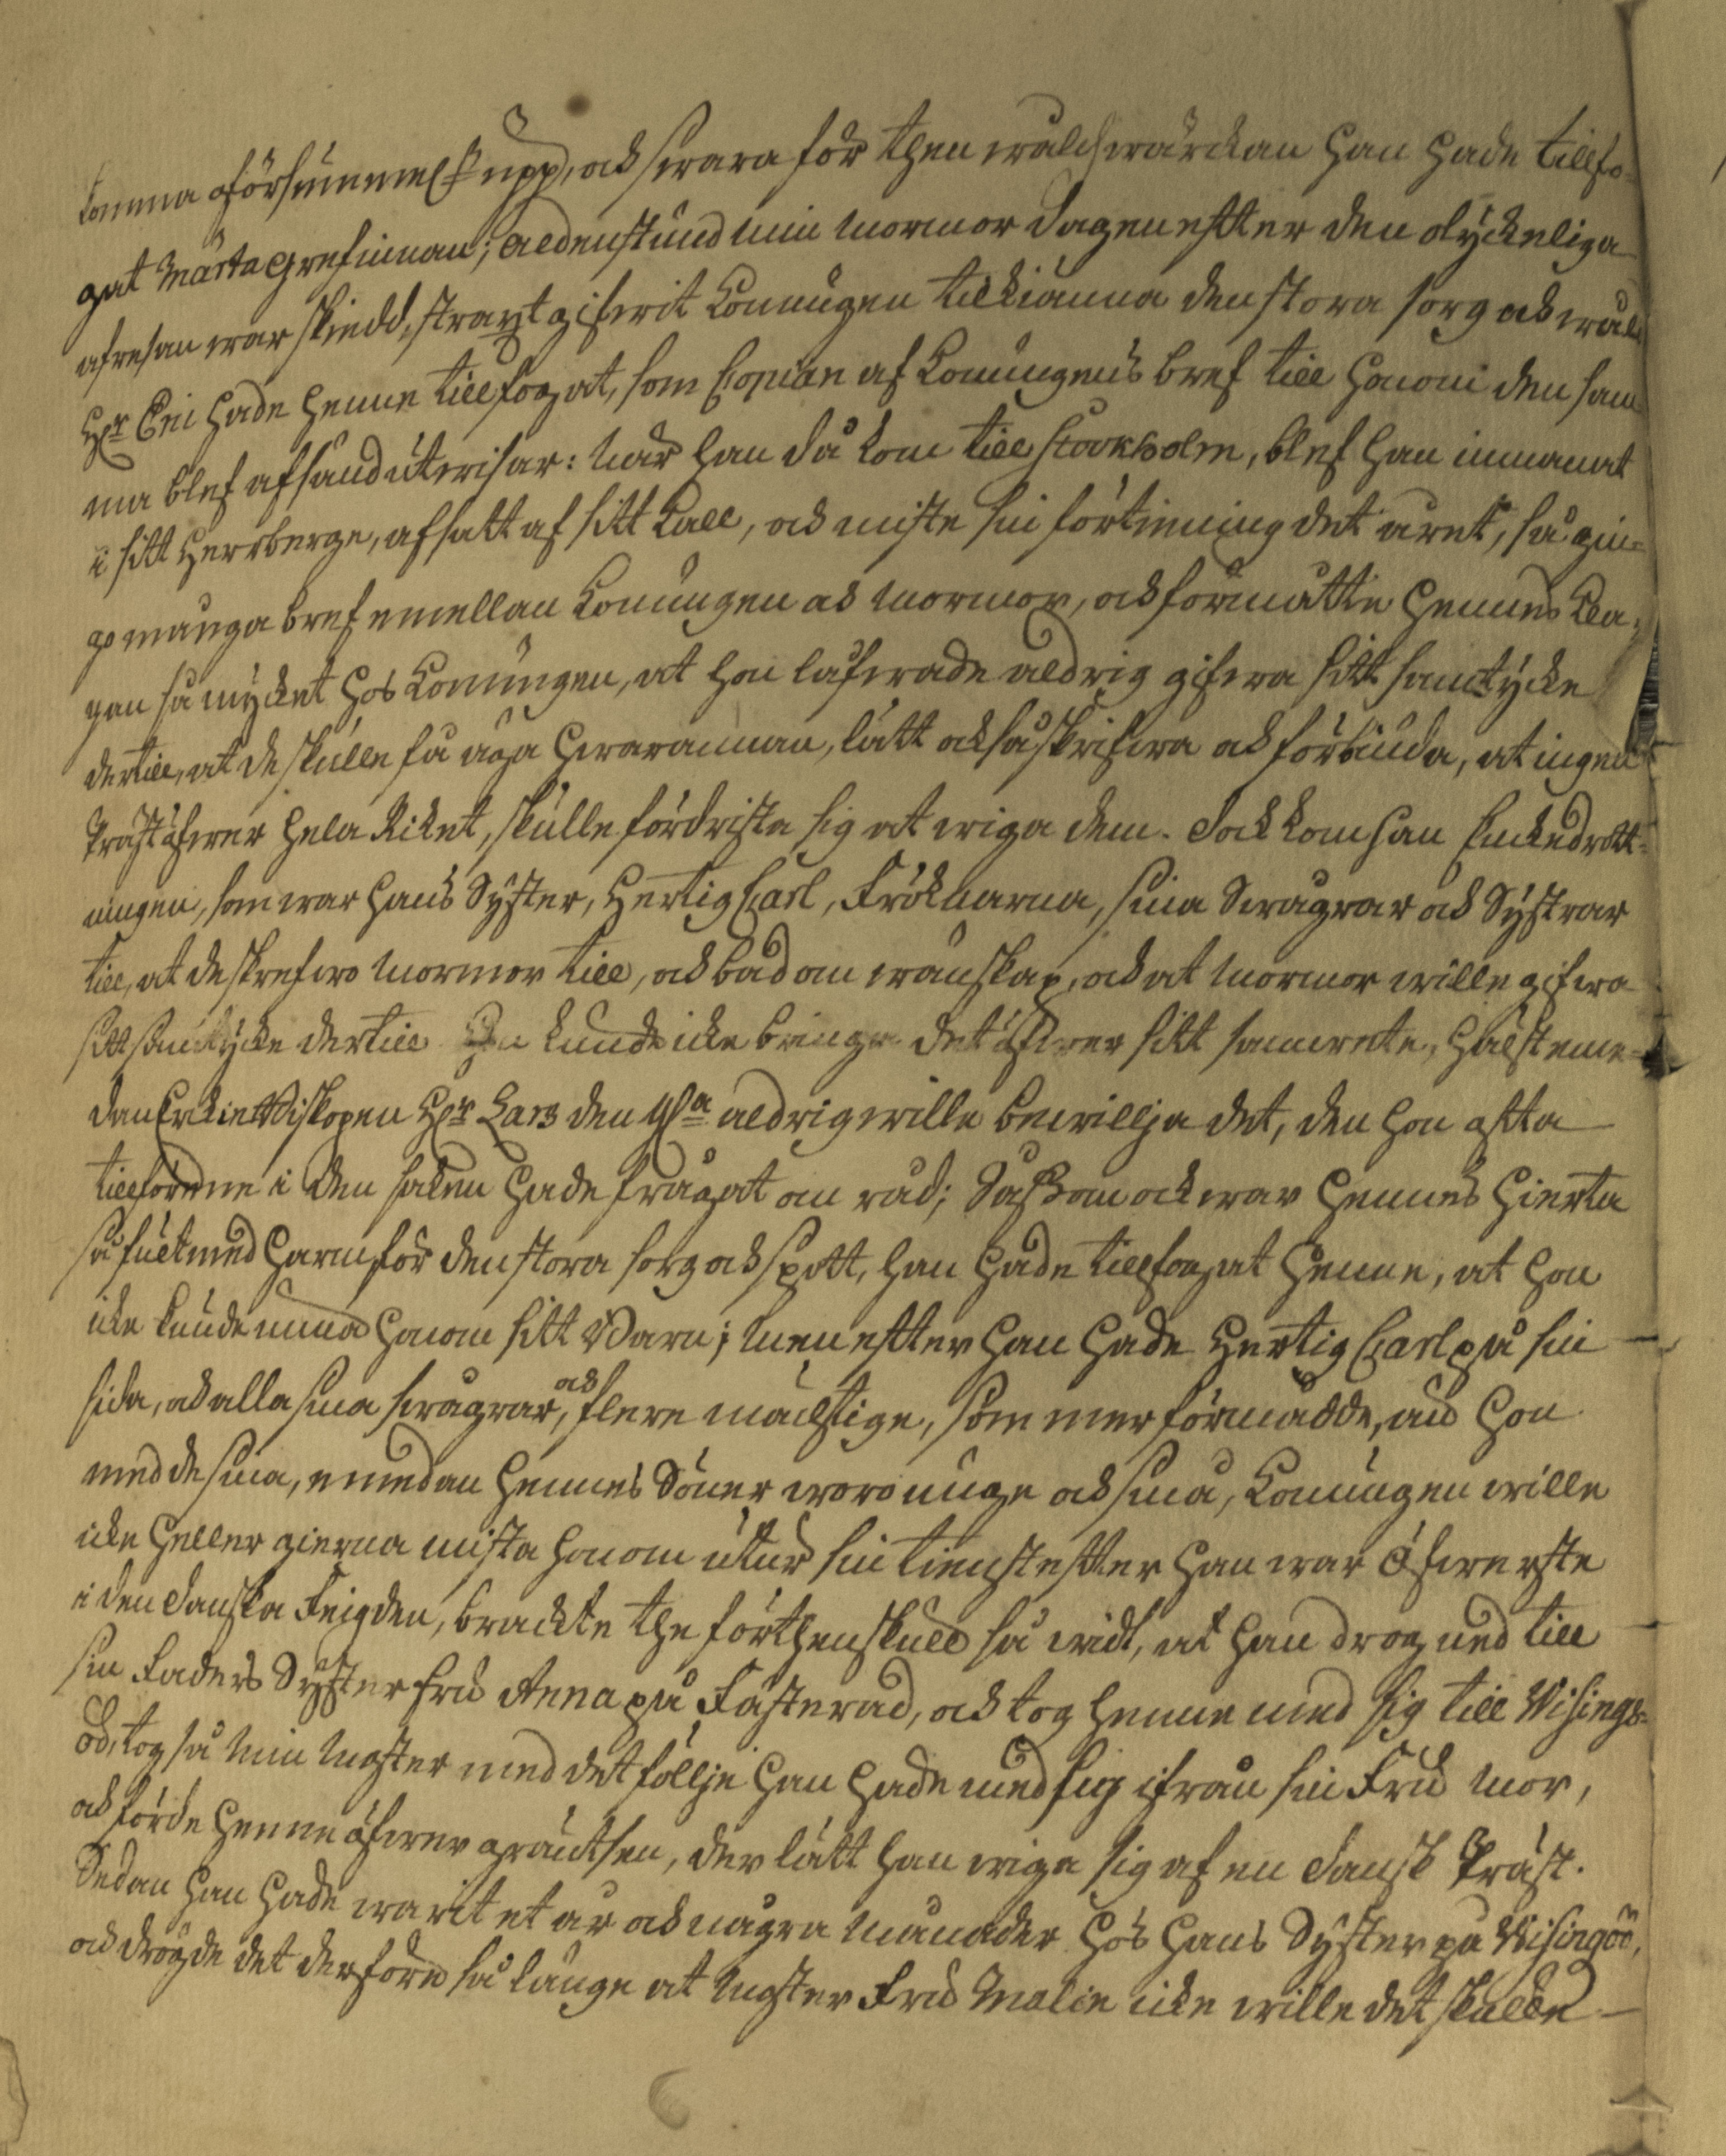 komma oförsummel: upp, ock swara för then wåldswärckan han hade tillfo-
gat Märta Grefinnan; aldenstund min Mormor dagen efter den olyckeliga
afresan war skiedd, straxt gifwit Konungen tillkiänna den stora sorg ock wåld
Hr Eric hade henne tillfogat, som Copian af Konungens bref till honom den sam-
ma blef afsänd utwisar: När han då kom till Stockholm, blef han inmanat
i sitt Herrberge, afsatt af sitt Kall, ock miste sin förtinning det året, så gin-
go många bref emellan Konungen ock Mormor, ock förmåtte hennes Kla-
gan så mycket hos Konungen, at hon lafwade aldrig gifwa sitt samtycke
dertill, at de skulle få äga hwarannan, lätt ock så skrifwa ock förbiuda, at ingen
Präst öfwer hela Riket, skulle fördrista sig at wiga dem. Dock kom han Enckedrott-
ningen, som war hans Syster, Hertig Carl, Fröknarna, sina Swågrar ock Systrar
till, at de skrefwo Mormor till, ock bad om wänskap, ock at Mormor wille gifwa
sitt samtycke dertill Hon kunde icke bringa det öfwer sitt samwete, hälst eme-
dan Erckie Biskopen Hr Lars den 4de aldrig wille bewillja det, den hon ofta
tillförenne i den saken hade frågat om råd; Såssom ock war hennes hierta
så fult med harm, för den stora sorg ock spott, han hade tillfogat henne, at hon
icke kunde unna honom sitt Barn; Men efter han hade Hertig Carl på sin
sida, ock alla sina swågrar, ock flere mächtige, som mer förmådde, än hon
med de sina, emedan hennes Söner woro unge ock små, Konungen wille
icke heller gierna mista honom utur sin tienst efter han war Öfwerste
i den Danska Feigden, brackte the förthenskull så widt, at han drog ned till
sin Faders Syster Fru Anna på Fästerad, ock tog henne med sig till Wisings-
öö, tog så Min Moster med detföllje han hade med sig ifrån sin Fru Mor,
ock förde henne öfwer gräntsen, der lätt han wiga sig af en Dansk Präst.
Sedan han hade warit et år ock några Månader hos hans Syster på Wisingöö,
ock drögde det derföre så länge at Moster Fru Malin icke wille det skulle